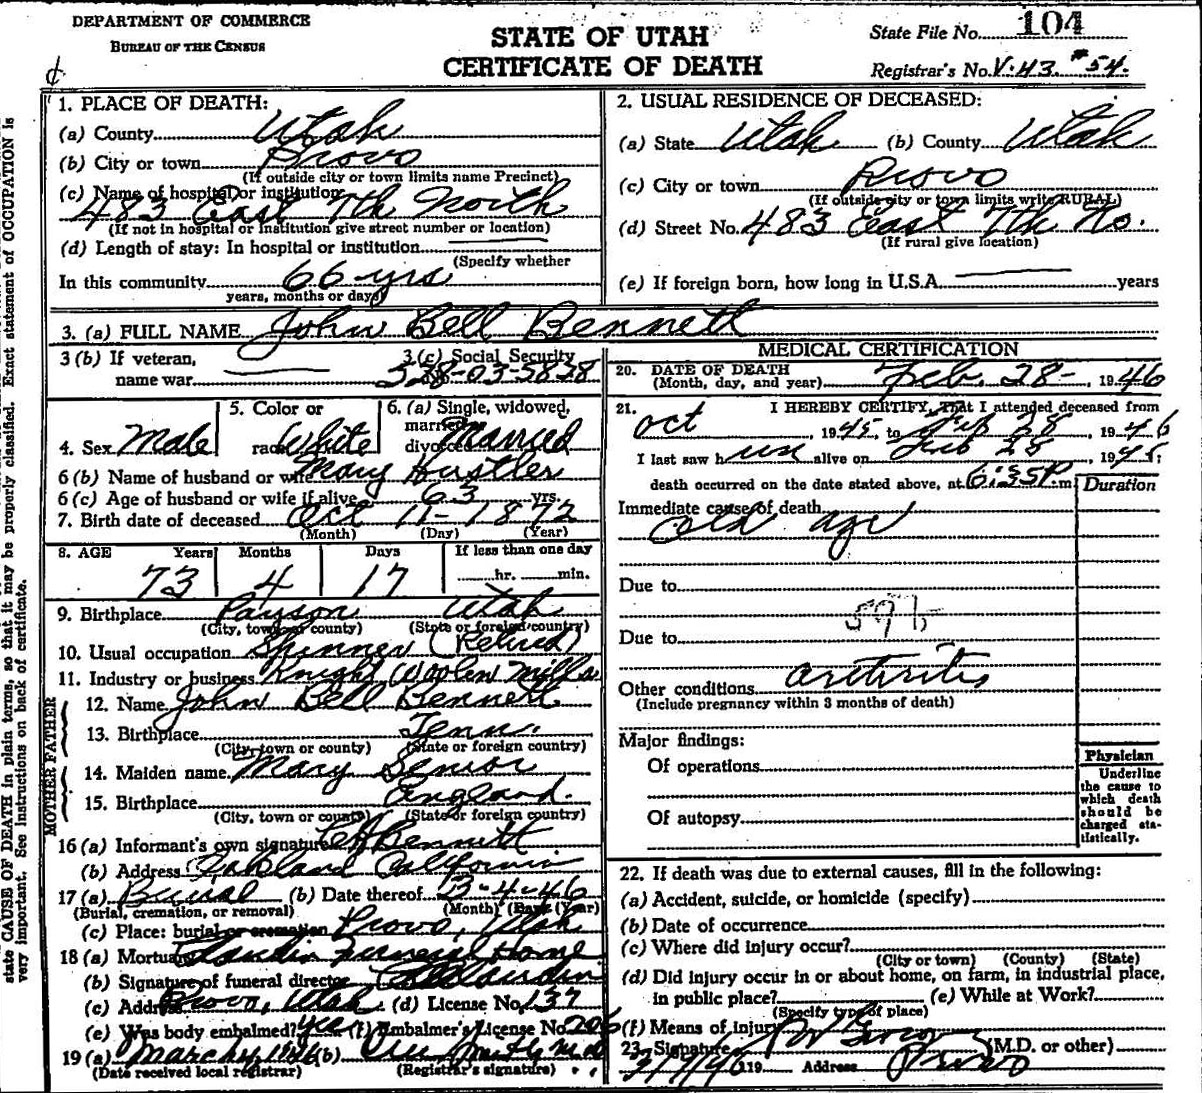 DEPARTMENT OF COMMERCE
BUREAU OF THE CENSUS
STATE OF UTAH
CERTIFICATE OF DEATH
State File No. 104
Registrar's No. V-43 #54.
state CAUSE OF DEATH in plain terms, so that it may be properly classified. Exact statement of OCCUPATION is
very important. See instructions on back of certificate.
1. PLACE OF DEATH:
(a) County Utah
(b) City or town Provo
(If outside city or town limits name Precinct)
(c) Name of hospital or institution:
483 East 7th North
(If not in hospital or institution give street number or location)
(d) Length of stay: In hospital or institution
(Specify whether
In this community 66 yrs
years, months or days)
2. USUAL RESIDENCE OF DECEASED:
(a) State Utah (b) County Utah
(c) City or town Provo
(If outside city or town limits write RURAL)
(d) Street No. 483 East 7th No.
(If rural give location)
(e) If foreign born, how long in U.S.A. years
3. (a) FULL NAME John Bell Bennett
3 (b) If veteran,
name war
3 (c) Social Security
528-03-5828
4. Sex Male
5. Color or
race White
6. (a) Single, widowed,
married,
divorced Married
6 (b) Name of husband or wife Mary Hustler
6 (c) Age of husband or wife if alive 63 yrs.
7. Birth date of deceased Oct 11-1872
(Month) (Day) (Year)
8. AGE Years Months Days If less than one day
73 4 17 hr. min.
9. Birthplace Payson Utah
(City, town or county) (State or foreign country)
10. Usual occupation Spinner (Retired)
11. Industry or business Knight Woolen Mills
FATHER
12. Name John Bell Bennett
13. Birthplace Tenn.
(City, town or county) (State or foreign country)
MOTHER
14. Maiden name Mary Senior
15. Birthplace England.
(City, town or county) (State or foreign country)
16 (a) Informant's own signature Bennett
(b) Address Oakland California
17 (a) Burial (b) Date thereof 3-4-46
(Burial, cremation, or removal) (Month) (Day) (Year)
(c) Place: burial or cremation Provo, Utah
18 (a) Mortuary Claudin Funeral Home
(b) Signature of funeral director Claudin
(c) Address Provo, Utah (d) License No. 137
(e) Was body embalmed? yes (f) Embalmer's License No. 206
19 (a) March 4, 1946 (b)
(Date received local registrar) (Registrar's signature)
MEDICAL CERTIFICATION
20. DATE OF DEATH
(Month, day, and year) Feb. 28-, 1946
21. I HEREBY CERTIFY, That I attended deceased from
Oct, 1945, to Feb 28, 1946
I last saw him alive on Feb 28, 1945;
death occurred on the date stated above, at 6:35P m.
Duration
Immediate cause of death
Old age
Due to
Due to
Other conditions arthritis
(Include pregnancy within 3 months of death)
Major findings:
Of operations
Of autopsy
Physician
Underline
the cause to
which death
should be
charged sta-
tistically.
22. If death was due to external causes, fill in the following:
(a) Accident, suicide, or homicide (specify)
(b) Date of occurrence
(c) Where did injury occur?
(City or town) (County) (State)
(d) Did injury occur in or about home, on farm, in industrial place,
in public place? (e) While at Work?
(Specify type of place)
(f) Means of injury
23. Signature (M.D. or other)
19 Address Provo